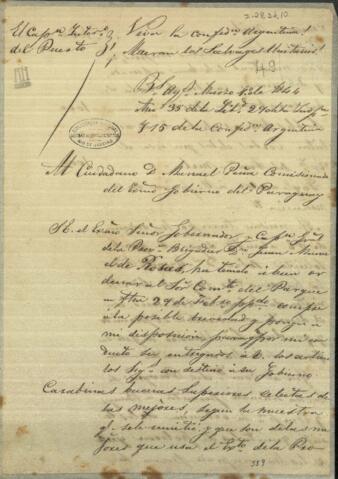 I-28,26,10
El Cap.n Interino
del Puerto
Viva la confed.n Argentina!
Mueran los Salvages Unitarios!
B.s Ay.s Marzo 1.o de 1844
Año 35 de la Lib.d 29 de la Indep.a
y 15 de la Confed.n Argentina
Al Ciudadano D. Manuel Peña Comisionado
del Exmo Gobierno del Paraguay
S.E. el Exmo Señor Gobernador y Cap.n Gral
de la Prov.a Brigadier D.n Juan Manuel
de Rosas, ha tenido á bien or
denar al Sor Com.te del Parque
en fha 29 de Feb.o pp.do
á la posible brevedad y ponga á
mi disposicion, para q.e por mi con
ducto sea entregado á U. los articu
los sig.s con destino á su Gobierno
Carabinas buenas superiores, selectas de
las mejores, segun la muestra
q.e se le remitio, y que son de las me
jores que usa el Ex.to de la Pro
389